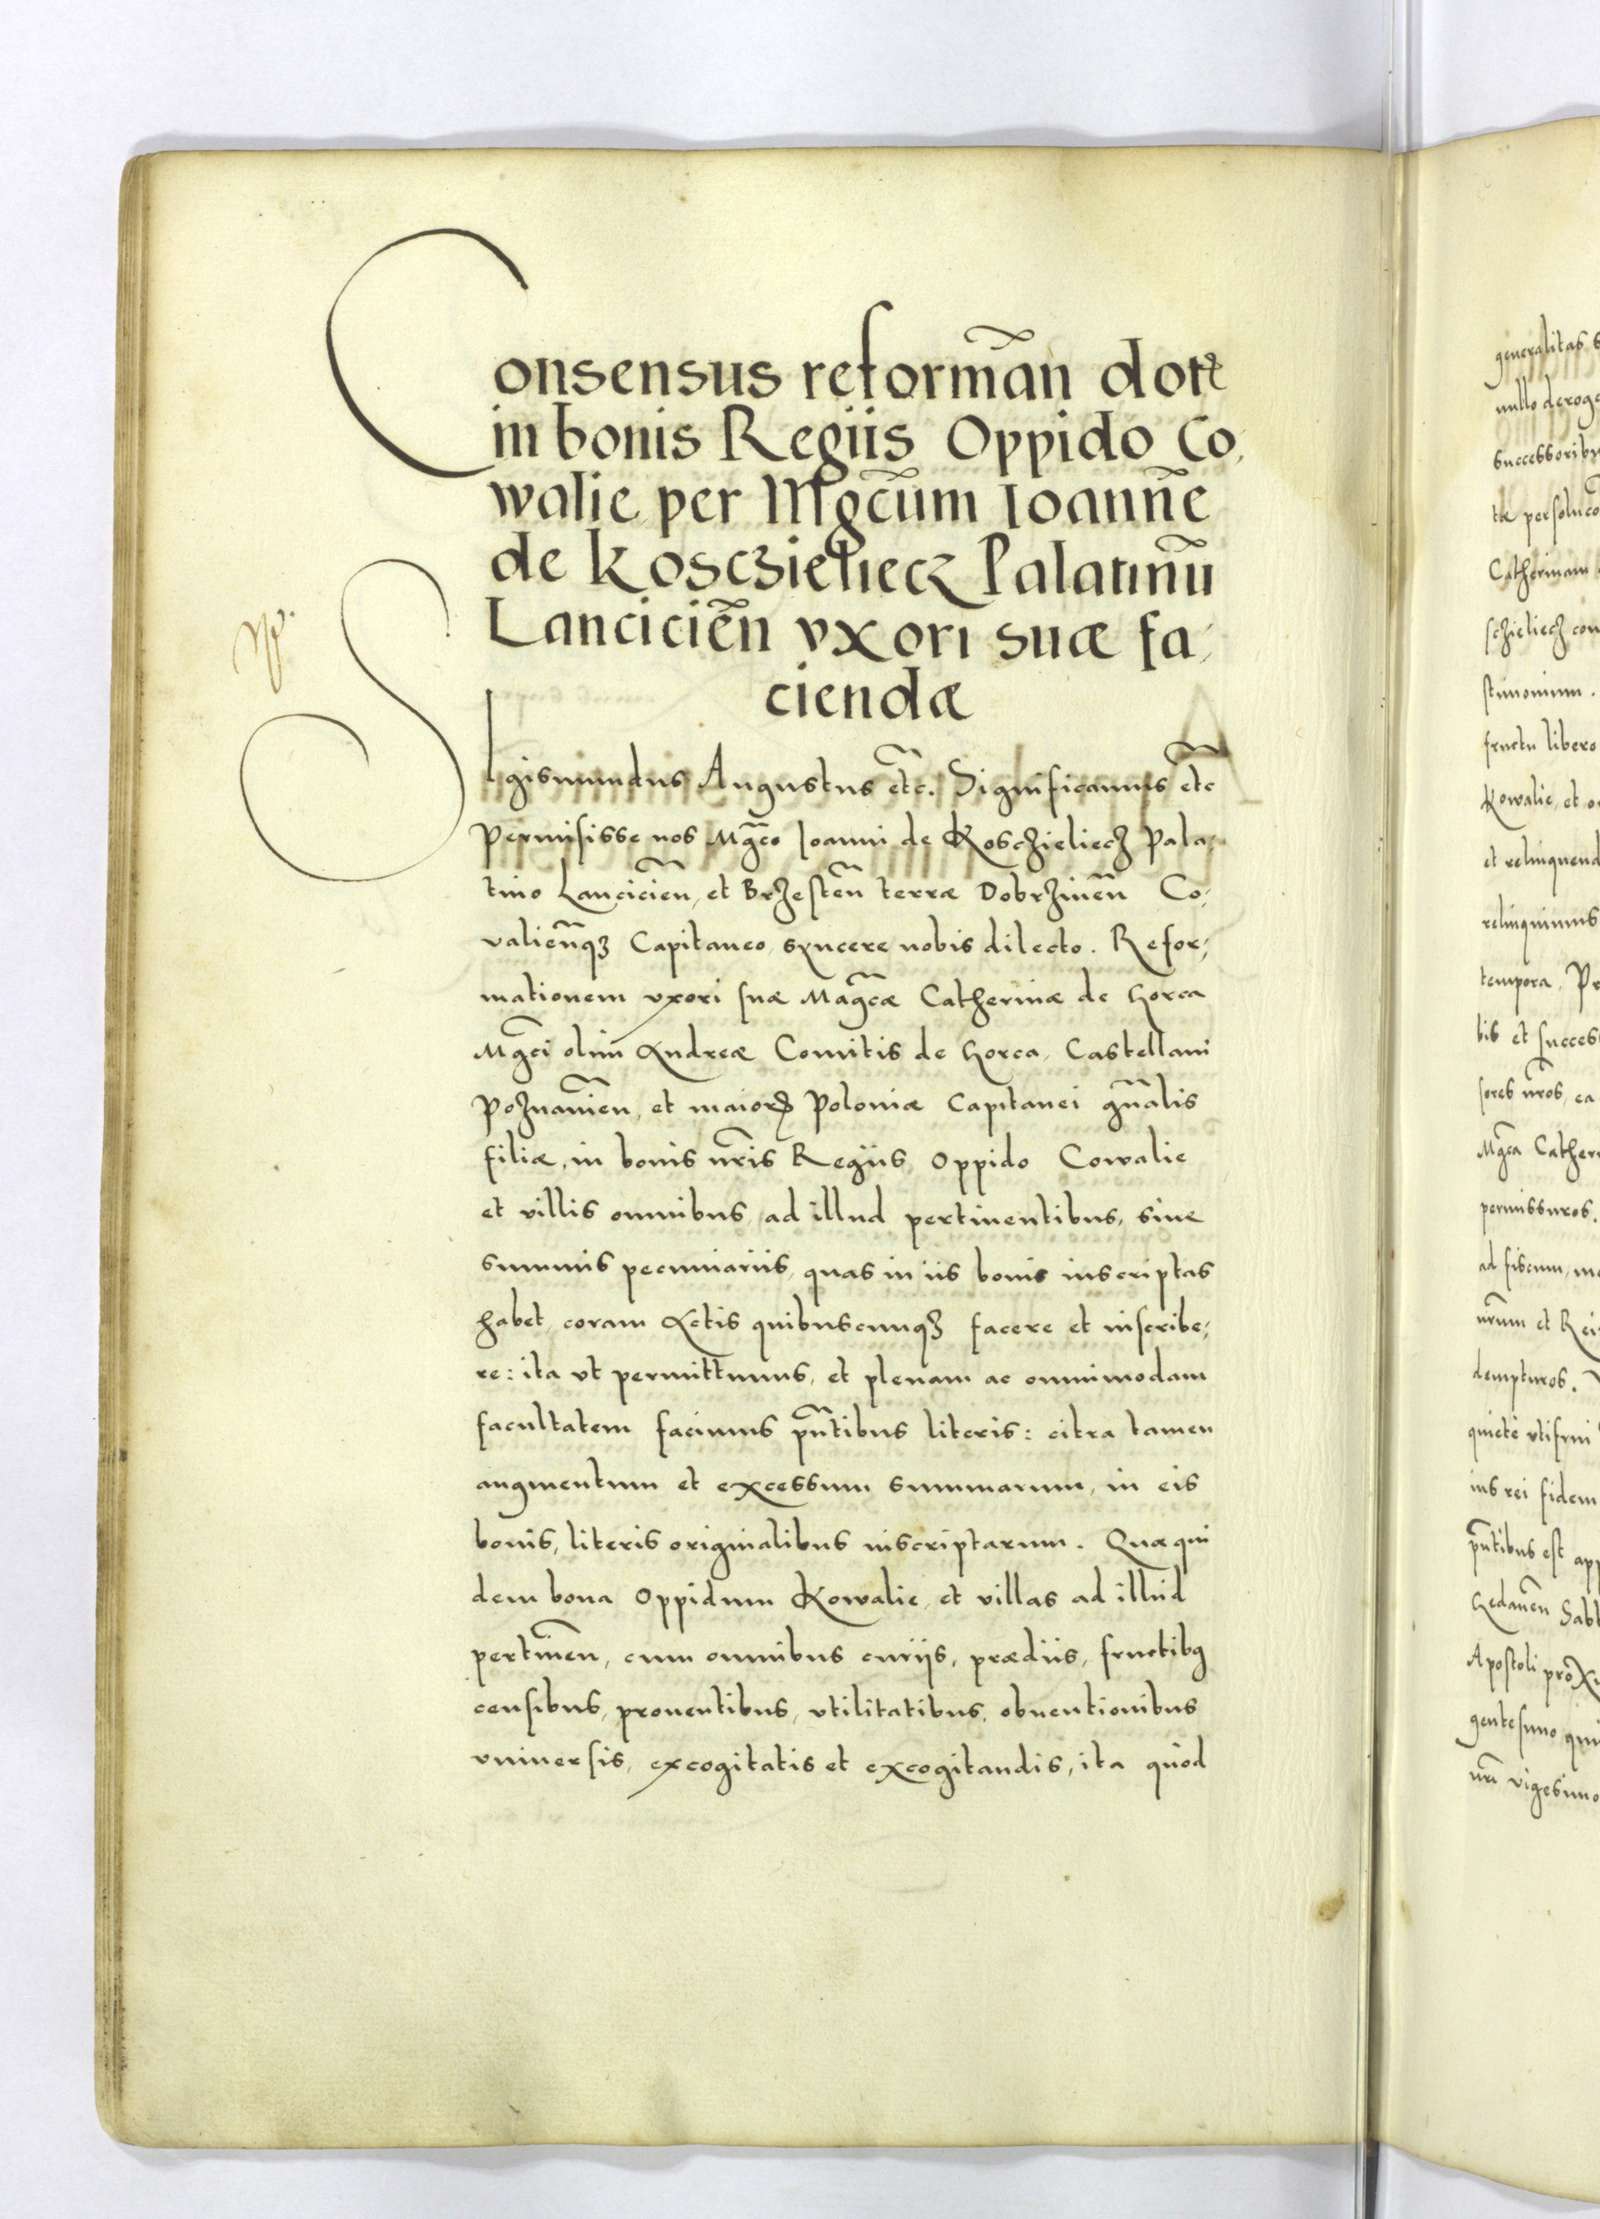 Consensus reformãn dotꝭ
in bonis Regiis Oppido Co,
walie per Mgcũm Ioannẽ
de Koscziеliecz Palatinũ
Lancicieñ vxori suæ fa,
ciendæ
Sigismundus Augustus etc̃. Significamus etc̃
Permisisse nos Mgc̃o Ioanni de Kosczieliecz Pala,
tino Lancicieñ, et Brzesteñ terræ Dobrzineñ Co,
valieñqꝫ Capitaneo, syncere nobis dilecto. Refor,
mationem vxori suæ Magc̃æ Catherinæ de Gorca
Mgc̃i olim Andreæ Comitis de Gorca, Castellani
Poznanieñ, et maioꝝ Poloniæ Capitanei gñalis
filiæ, in bonis nr̃is Regiis, Oppido Cowalie
et villis omnibus, ad illud pertinentibus, siue
summis pecuniariis, quas in iis bonis inscriptas
habet, coram Actis quibuscunqꝫ facere et inscribe,
re: ita vt permittimus, et plenam ac omnimodam
facultatem facimus pñtibus literis: citra tamen
augmentum et excessum summarum, in eis
bonis, literis originalibus inscriptarum. Quæ qui
dem bona Oppidum Kowalie, et villas ad illud
pertineñ, cum omnibus curijs, prædiis, fructibꝰ
censibus, prouentibus, vtilitatibus, obuentionibus
vniuersis, excogitatis et excogitandis, ita quod
generalitas
nullo deroga
successoribu
Catherinam
sczieliecz con
stimonium.
fructu libero
Kowalie, et
et relinquend
relinquimus
tempora. Pr
bis et success
sores nr̃os, ea
Mgc̃a Cather
permissuros.
ad fiscum,
nr̃um et Rei
dempturos.
quietè vtifrui
ius rei fidem
pñtibus est app
Gedaneñ Sabb
Apostoli prox
gentesimo qui
nr̃i vigesimo